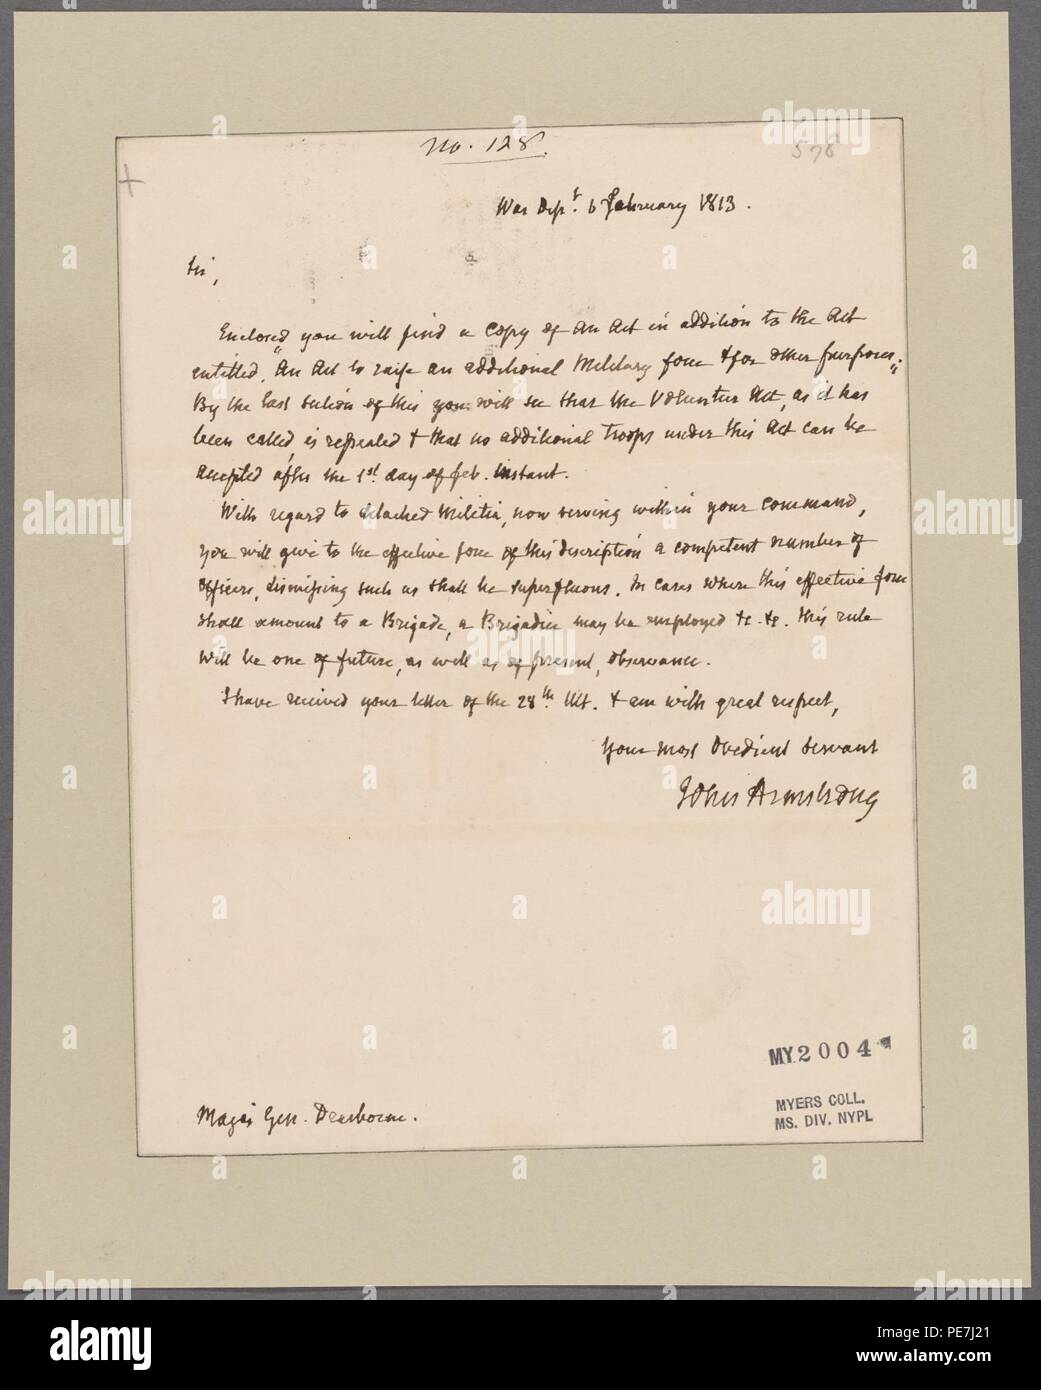 No. 128.
576
War Dept. 6 February 1813.
Sir,
Enclosed you will find a Copy of An Act in addition to the Act
entitled, "An Act to raise an additional Military force & for other purposes."
By the last section of this you will see that the Volunteer Act, as it has
been called, is repealed & that no additional Troops under this Act can be
accepted after the 1st. day of Feb. instant.
With regard to detached Militia, now serving within your command,
you will give to the effective force of this description a competent number of
officers, dismissing such as shall be superfluous. In cases where this effective force
shall amount to a Brigade, a Brigadier may be employed &c. &c. This rule
will be one of future, as well as of present, observance.
I have received your letter of the 28th. Ult. & am with great respect,
Your most Obedient Servant
John Armstrong
MY2004
MYERS COLL.
MS. DIV. NYPL
Major Gen. Dearborne.
alamy
Image ID: PE7J21
www.alamy.com